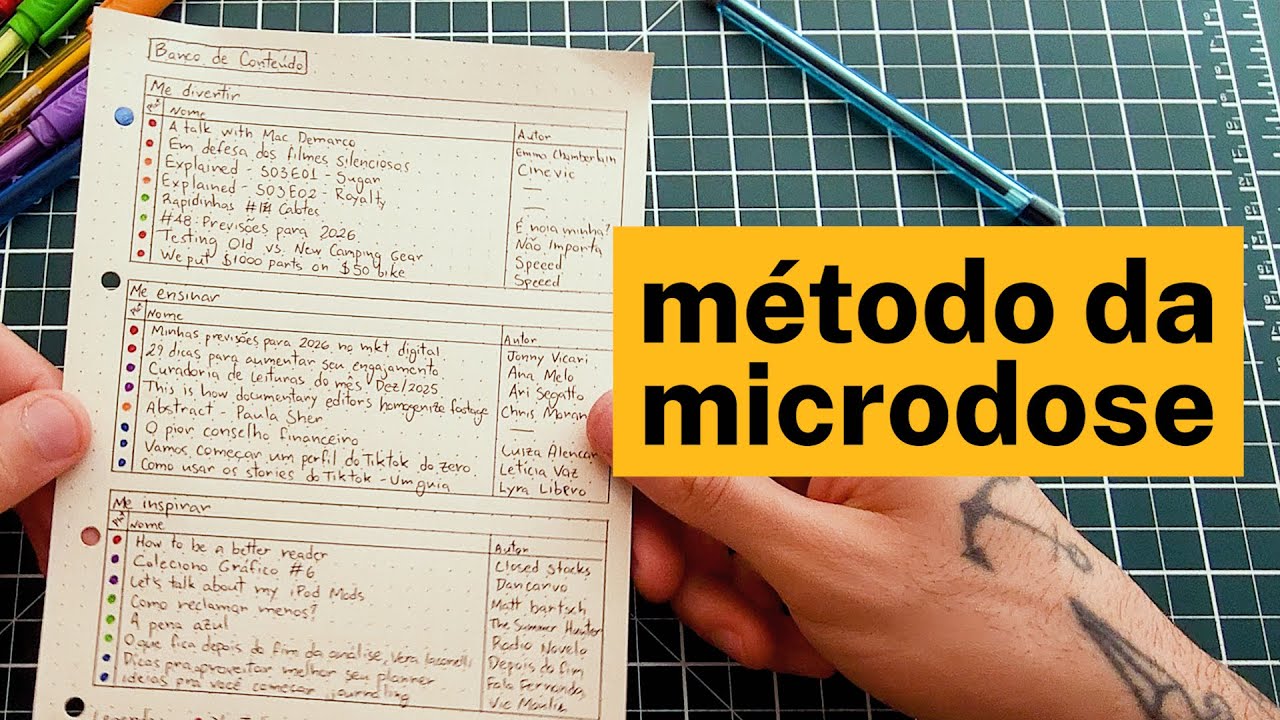 Banco de Conteúdo
Me divertir
Nome Autor
A talk with Mac Demarco Emma Chamberlain
Em defesa dos filmes silenciosos Cinevic
Explained - S03E01 - Sugar —
Explained - S03E02 - Royalty —
Rapidinhas #14 Cabtes É nóia minha?
#48: Previsões para 2026 Não Importa
Testing Old vs. New Camping Gear Speeed
We put $1000 parts on $50 bike Speeed
Me ensinar
Nome Autor
Minhas previsões para 2026 no mkt digital Jonny Vicari
29 dicas para aumentar seu engajamento Ana Melo
Curadoria de leituras do mês Dez/2025 Ari Segatto
This is how documentary editor's homogenize footage Chris Moran
Abstract - Paula Sher —
O pior conselho financeiro Luiza Alencar
Vamos começar um perfil do Tiktok do zero Letícia Vaz
Como usar os stories do Tiktok - Um guia Lyra Libero
Me inspirar
Nome Autor
How to be a better reader Closed Stacks
Coleciono Gráfico #6 Dancarvo
Let's talk about my iPod Mods Matt bartsch
Como reclamar menos? The Summer Hunter
A pena azul Rádio Novelo
O que fica depois do fim da análise, Vera Iaconelli Depois do fim
Dicas pra aproveitar melhor seu planner Fala Fernanda
ideias pra você começar journaling Vic
método da
microdose